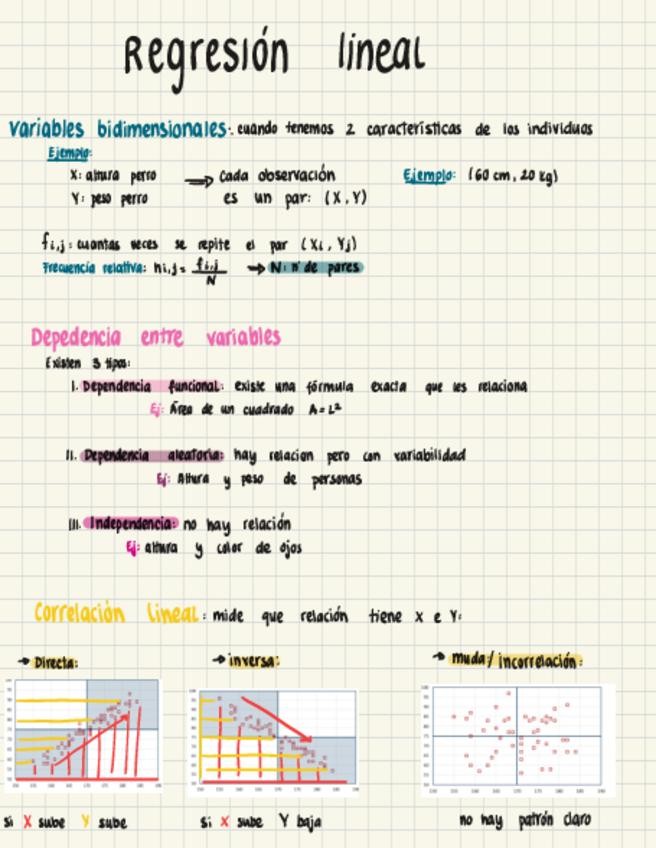 Regresión lineal
Variables bidimensionales: cuando tenemos 2 características de los individuos
Ejemplo:
X: altura perro → cada observación Ejemplo: (60 cm, 20 kg)
Y: peso perro es un par: (X, Y)
fi,j: cuantas veces se repite el par (Xi, Yj)
Frecuencia relativa: hi,j = fi,j / N → N: nº de pares
Depedencia entre variables
Existen 3 tipos:
I. Dependencia funcional: existe una fórmula exacta que les relaciona
Ej: Área de un cuadrado A=L²
II. Dependencia aleatoria: hay relacion pero con variabilidad
Ej: Altura y peso de personas
III. Independencia: no hay relación
Ej: altura y color de ojos
Correlación lineal: mide que relación tiene x e Y:
→ Directa: → inversa: → muda/incorrelación:
si X sube Y sube si X sube Y baja no hay patrón claro